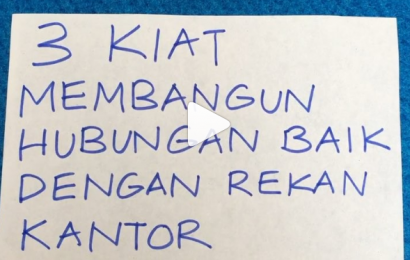 3 KIAT
MEMBANGUN
HUBUNGAN BAIK
DENGAN REKAN
KANTOR